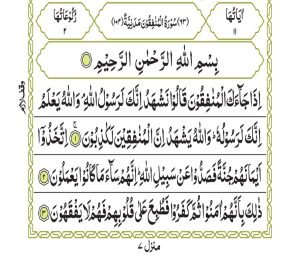 اٰيَاتُهَا ١١
(٦٣) سُوْرَةُ الْمُنٰفِقُوْنَ مَدَنِيَّةٌ (١٠٤)
رُكُوْعَاتُهَا ٢
بِسْمِ اللّٰهِ الرَّحْمٰنِ الرَّحِيْمِ
اِذَا جَآءَكَ الْمُنٰفِقُوْنَ قَالُوْا نَشْهَدُ اِنَّكَ لَرَسُوْلُ اللّٰهِ ۘ وَاللّٰهُ يَعْلَمُ
اِنَّكَ لَرَسُوْلُهٗ ؕ وَاللّٰهُ يَشْهَدُ اِنَّ الْمُنٰفِقِيْنَ لَكٰذِبُوْنَ ۚ ﴿١﴾ اِتَّخَذُوْۤا
اَيْمَانَهُمْ جُنَّةً فَصَدُّوْا عَنْ سَبِيْلِ اللّٰهِ ؕ اِنَّهُمْ سَآءَ مَا كَانُوْا يَعْمَلُوْنَ ﴿٢﴾
ذٰلِكَ بِاَنَّهُمْ اٰمَنُوْا ثُمَّ كَفَرُوْا فَطُبِعَ عَلٰى قُلُوْبِهِمْ فَهُمْ لَا يَفْقَهُوْنَ ﴿٣﴾
وقف لازم
منزل ٧